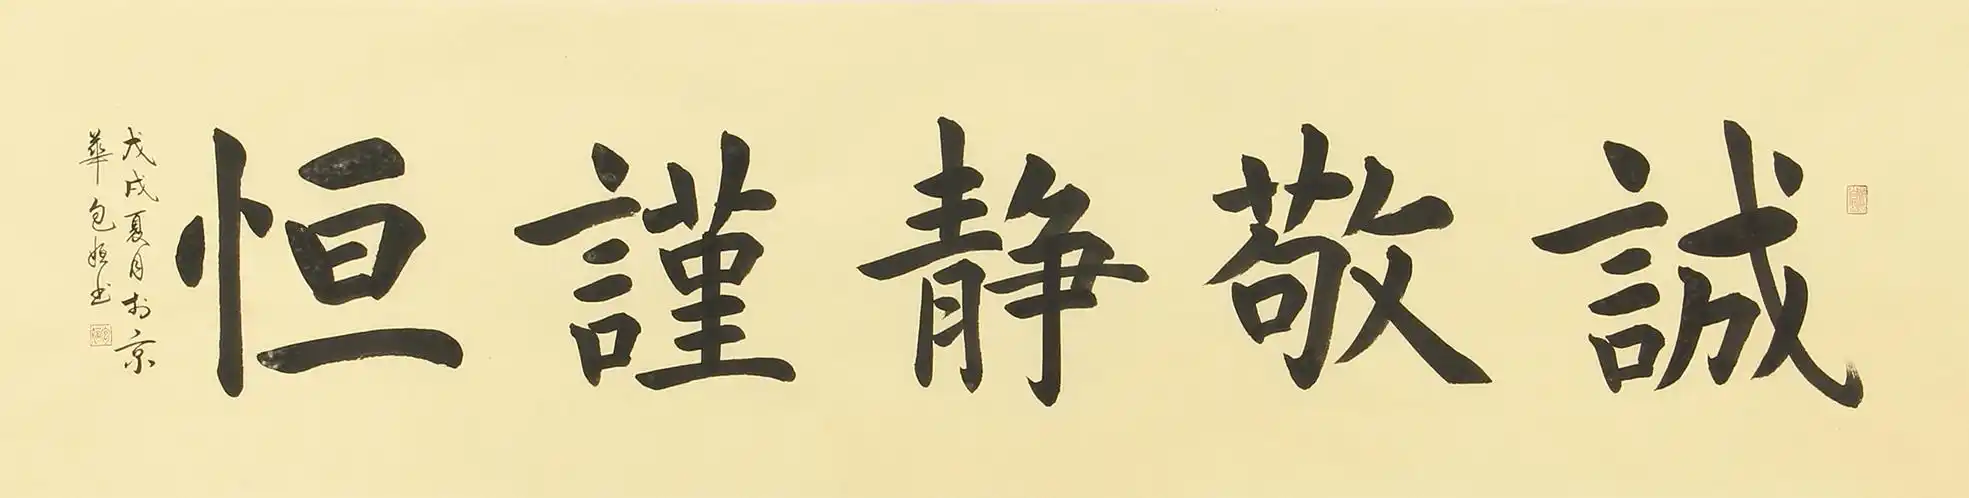 誠敬静謹恒
戊戌夏月於京
華包烜书